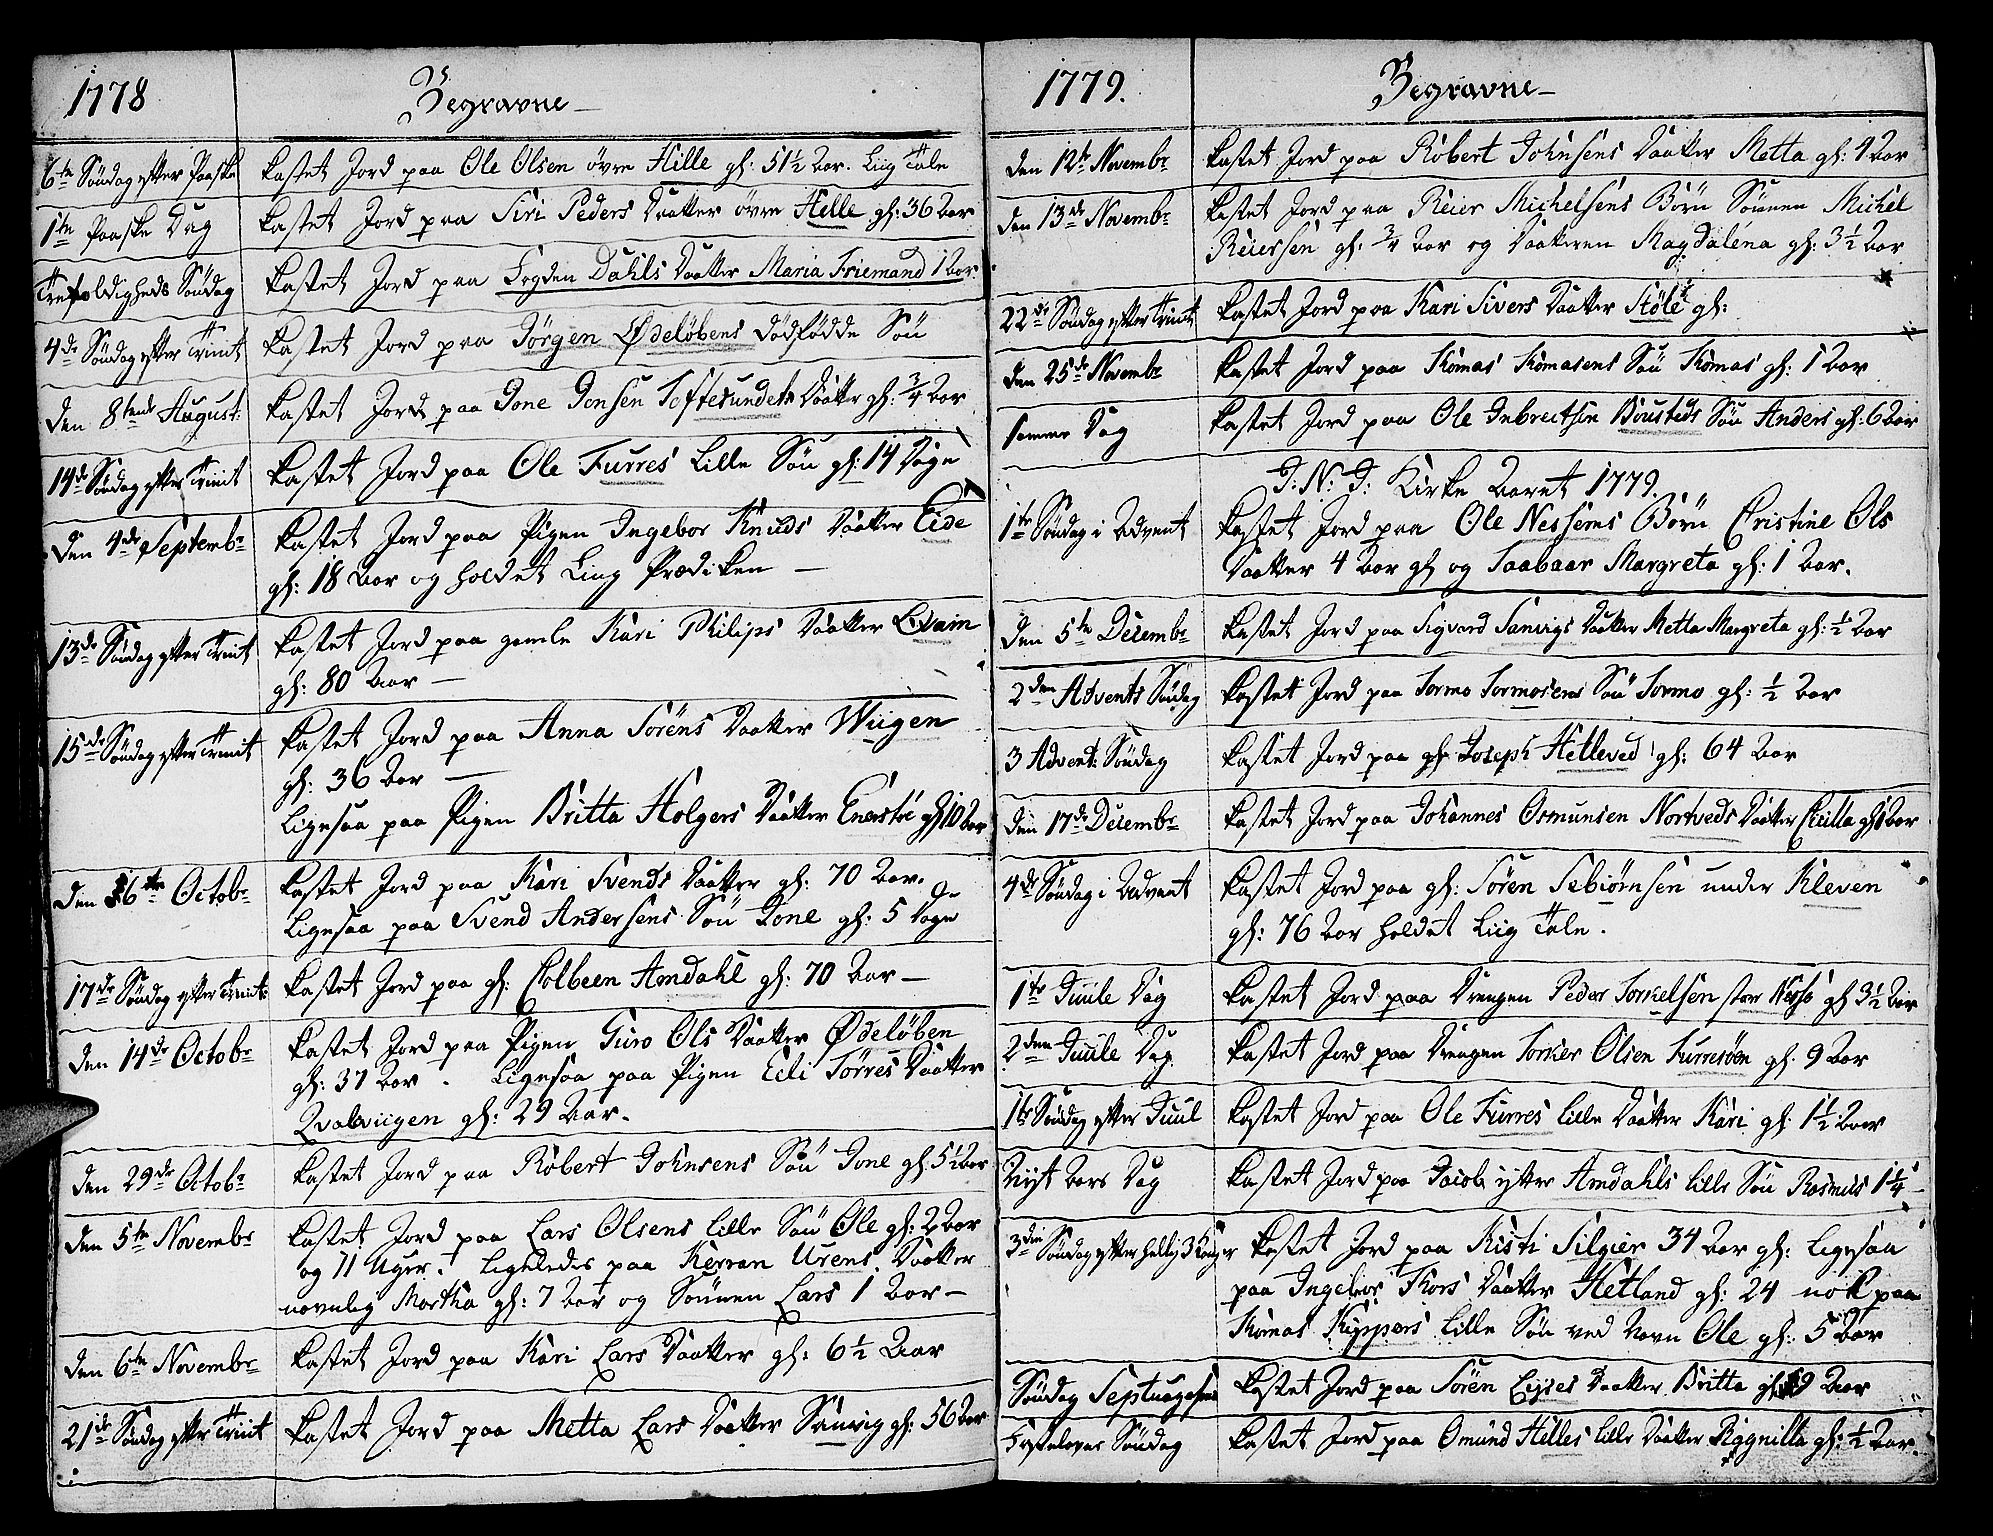 1778
Begravne
6te Søndag efter Paaske kastet Jord paa Ole Olsen øvre Hille gl: 51½ Aar. Liig Tale
1te Paaske Dag kastet Jord paa Siri Peders Daatter øvre Helle gl: 36 Aar
Trefoldigheds Søndag kastet Jord paa Fogden Dahls Daatter Maria Friemand 1 Aar
4de Søndag efter Trinit kastet Jord paa Jörgen Ødelöbens dödfödde Sön
den 8tende August: kastet Jord paa Jone Jonsen Toftesundets Daatter gl: ¾ Aar
14de Søndag efter Trinit kastet Jord paa Ole Furres Lille Sön gl: 14 Dage
den 4de Septembr kastet Jord paa Pigen Ingebor Knuds Daatter Eide
gl: 18 Aar og holdet Liig Prædiken —
13de Søndag efter Trinit kastet Jord paa gamle Kari Philips Daatter
gl: 80 Aar —
15de Søndag efter Trinit kastet Jord paa Anna Sörens Daatter Wiigen
gl: 36 Aar —
Ligesaa paa Pigen Britta Holgers Daatter Enerstöe gl 10 Aar
den 6te Octobr kastet Jord paa Kari Svends Daatter gl: 70 Aar.
Ligesaa paa Svend Andersens Sön Jone gl: 5 Dage
17de Søndag efter Trinit: kastet Jord paa gl: Colbeen Amdahl gl: 70 Aar —
den 14de Octobr kastet Jord paa Pigen Guro Ols Daatter Ødelöben
gl: 37 Aar. Ligesaa paa Pigen Eli Torres Daatter
Qvalviigen gl: 29 Aar.
den 29de Octobr kastet Jord paa Robert Johnsens Sön Jone gl: 5½ Aar
den 5te Novembr kastet Jord paa Lars Olsens lille Sön Ole gl: 2 Aar
og 11 Uger. Ligeledes paa Kerran Urens Daatter
navnlig Martha gl: 7 Aar og Sönnen Lars 1 Aar —
den 6te Novembr kastet Jord paa Kari Lars Daatter gl: 6½ Aar
21de Søndag efter Trinit kastet Jord paa Metta Lars Daatter Sanvig gl: 56 Aar
1779.
Begravne —
den 12te Novembr kastet Jord paa Robert Johnsens Daatter Metta gl: 1 Aar
den 13de Novembr kastet Jord paa Reier Michelsens Børn Sönnen Michel
Reiersen gl: ¾ Aar og Daatteren Magdalena gl: 3½ Aar
22de Søndag efter Trinit kastet Jord paa Kari Sivers Daatter Stöle gl:
den 25de Novembr kastet Jord paa Tomas Tomasens Sön Tomas gl: 1 Aar
samme Dag kastet Jord paa Ole Inbreitsen Bousteds Sön Anders gl: 6 Aar
J: N: J: Kirke Aaret 1779.
1te Søndag i Advent kastet Jord paa Ole Nessems Børn Cristine Ols
Daatter 4 Aar gl og Taabaar Margreta gl: 1 Aar.
den 5te Decembr kastet Jord paa Sigvard Sanvigs Daatter Metta Margreta gl: ½ Aar
2den Advents Søndag kastet Jord paa Tormo Tormosens Sön Tormo gl: ½ Aar
3 Advent: Søndag kastet Jord paa gl: Joseph Hetleved gl: 64 Aar
den 17de Decembr kastet Jord paa Johannes Osmunsen Nortveds Daatter Cicilla gl 1 Aar
4de Søndag i Advent kastet Jord paa gl: Sören Sebiörnsen under Kleven
gl: 76 Aar holdet Liig Tale.
1te Juule Dag kastet Jord paa Drengen Peder Torkelsen stor Nersö gl 3½ Aar
2den Juule Dag kastet Jord paa Drengen Torker Olsen Furresöen gl: 9 Aar
1te Søndag efter Juul kastet Jord paa Ole Furres lille Daatter Kari gl: 1½ Aar
Nyt Aars Dag kastet Jord paa Jacob ytter Amdahls lille Sön Rasmus 1¼ —
3die Søndag efter hellig 3 Konger kastet Jord paa Kisti Silgier 34 Aar gl: Ligesaa
paa Ingebor Tors Daatter Hetland gl: 24 nok paa
Tomas Kippers Lille Sön ved Navn Ole gl: 5 Aar
Søndag Septuagesima kastet Jord paa Sören Eigies Daatter Britta gl: 9 Aar
Fastelavns Søndag kastet Jord paa Omund Hilles lille Daatter Rignilla gl: ½ Aar.